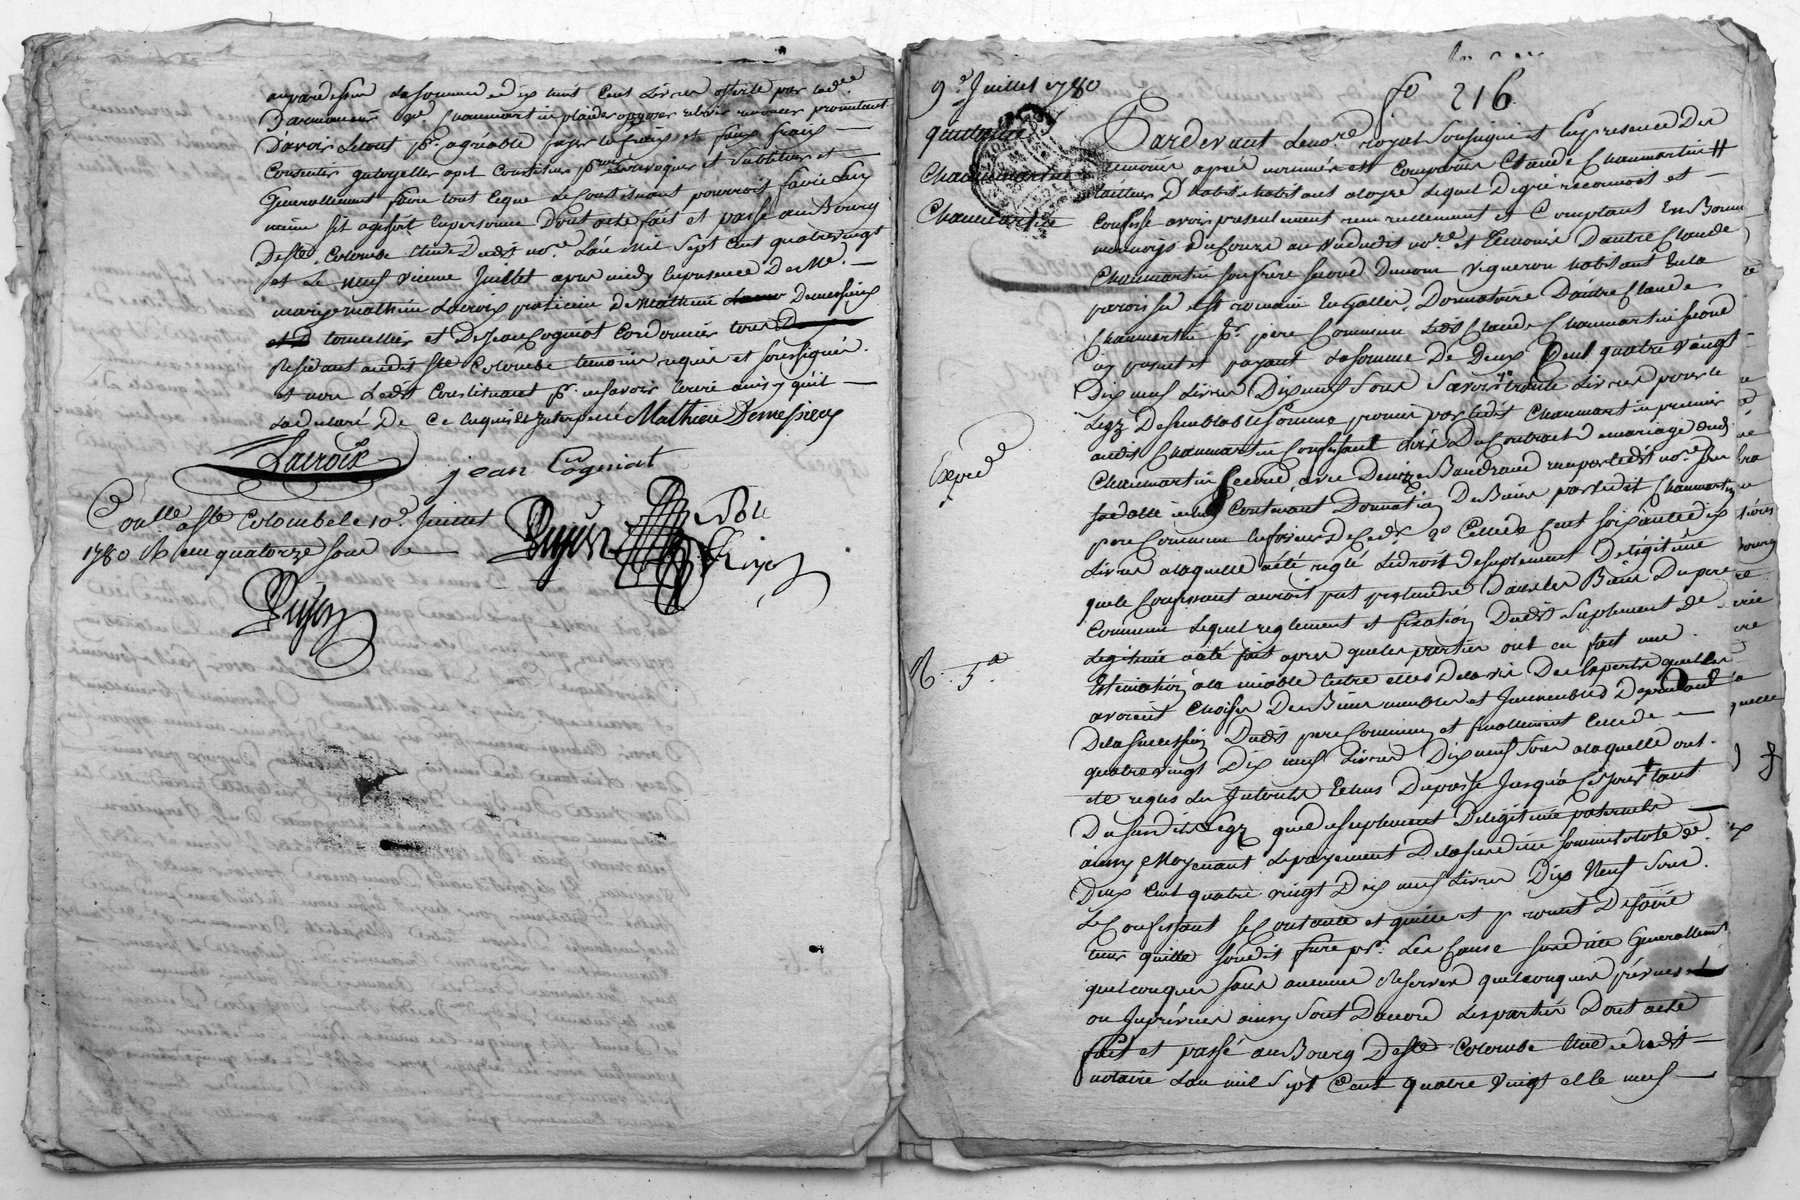 au pardessus la somme de dix huit cent Livres offerte par lad.
D'armancour Chaumartin plaider opposer elire renoncer promettant
D'avoir Letout pr. agréable payer les fraix et faux fraix —
Consentir qu'avec constituer revoquer et substituer et —
Generallement faire tout ceque le Constituant pourroit faire sans
meme sil agissoit en personne Dont acte fait et passé au Bourg
de Ste. Colombe Etude Dudit no.re L'an Mil Sept cent quatrevingt
et Le neuf vieme Juillet apres midy en presence De Me. —
mathieu Lacroix praticien de Mathieu Demessieux
tonnellier et De Jean Cogniat Cordonnier tous D
Residant audit Ste Colombe temoins requis et soussignés.
et non Ledit Constituant pr. ne savoir ecrire ainsy qu'il —
La declaré De Ce Enquis et Interpellé Mathieu Demessieux
Lacroix jean Cogniat
Con.lle a Ste Colombe le 10.e Juillet
1780 R quatorze sous
Dujon No.re Royal
Dujon
9.e Juillet 1780
fo 216
quittance
Chaumartin
Chaumartin
Pardevant Leno.re royal soussigné et En presence Des
temoins apres nommés est comparu Claude Chaumartin
tailleur D'habits habitant aloyre Lequel Degré reconnoit et —
Confesse avoir presentement reçu reellement et Comptant En Bonne
monnoye Ducours au vu dudit no.re et temoins D'autre Claude
Chaumartin son frere second Dunom vigneron habitant En la
paroisse St romain En Gallet, Donnataire D'autre Claude
Chaumartin pr. pere Commun Ledit Claude Chaumartin second
cy present et payant La somme De Deux Cent quatre vingt
Dix neuf Livres Dix neuf Sous Savoir trente Livres pour le
Legz De semblable Somme promis par ledit Chaumartin premier
audit Chaumartin Confessant Lors Du Contrat de mariage dud.
Chaumartin second avec Denize Baudrand reçu par ledit no.re
sa datte Contenant Donnation De Biens par ledit Chaumartin
pere Commun En faveur De Cent soixante et dix
Livres a laquelle a été reglé Ledroit De suplement De légitime
que le Confessant auroit put pretendre Dans les Biens Du pere
Commun Lequel reglement et fixation Dudit suplement De
Legitime a été fait apres que les partier ont eu fait une
Estimation a la miable Entre elles Delavis De Experts quelles
avoient Choisi Des Biens meubles et Immeubles Dependant
De la succession Dudit pere Commun et finallement Celle de —
quatrevingt Dix neuf Livres Dix neuf Sous a laquelle ont
ete reglés Les Interets Echus Du passé Jusqu'a ce Jour tant
Du susdit Legz que de suplement De légitime paternelle —
ainsy Moyenant Le payement De la susdite Somme totale De
Deux Cent quatre vingt Dix neuf Livres Dix Neuf Sous.
Le Confessant se Contente et quitte et promet De faire
tenir quitte sondit frere pr. Les Cause susdite Generallement
quelconques sans aucunes Reserves quelconques prévues
ou Imprévues ainsy sont D'accord Les parties Dont acte
fait et passé au Bourg De Ste Colombe Etude dudit —
notaire L'an mil Sept Cent quatre vingt et le neuf —
Expedié
R 5.s